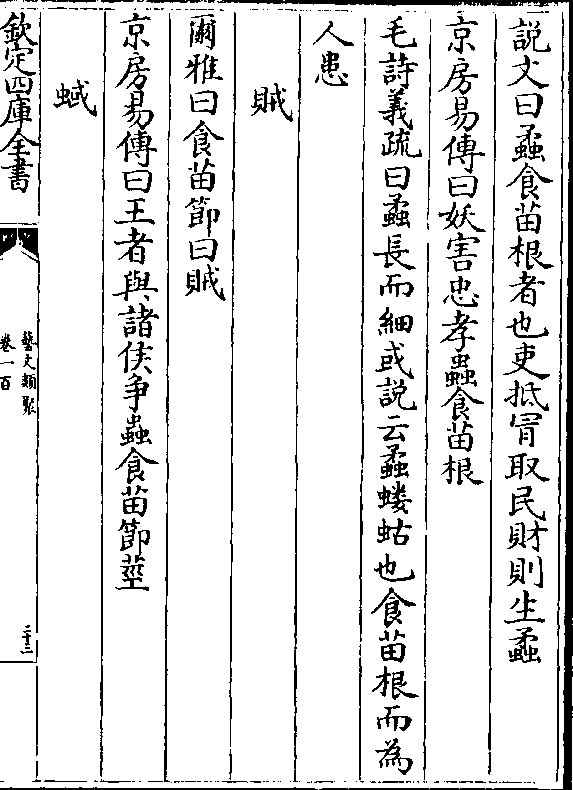 説文曰蟊食苗根者也吏抵冐取民財則生蟊
京房易傳曰妖害忠孝蟲食苗根
毛詩義疏曰蟊長而細或説云蟊螻蛄也食苗根而為
人患
賊
爾雅曰食苗節曰賊
京房易傳曰王者與諸侯争蟲食苗節莖
蜮
欽定四庫全書
藝文類聚
卷一百
二十三